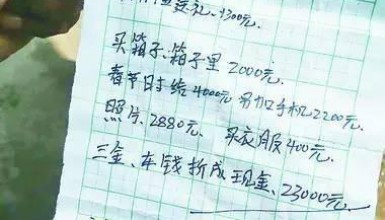 送礼、1300元.
买箱子、箱子里 2000元.
春节时给4000元 另加手机2200元.
照片、2880元、 买衣服400元.
三金、车钱折成现金、23000元.